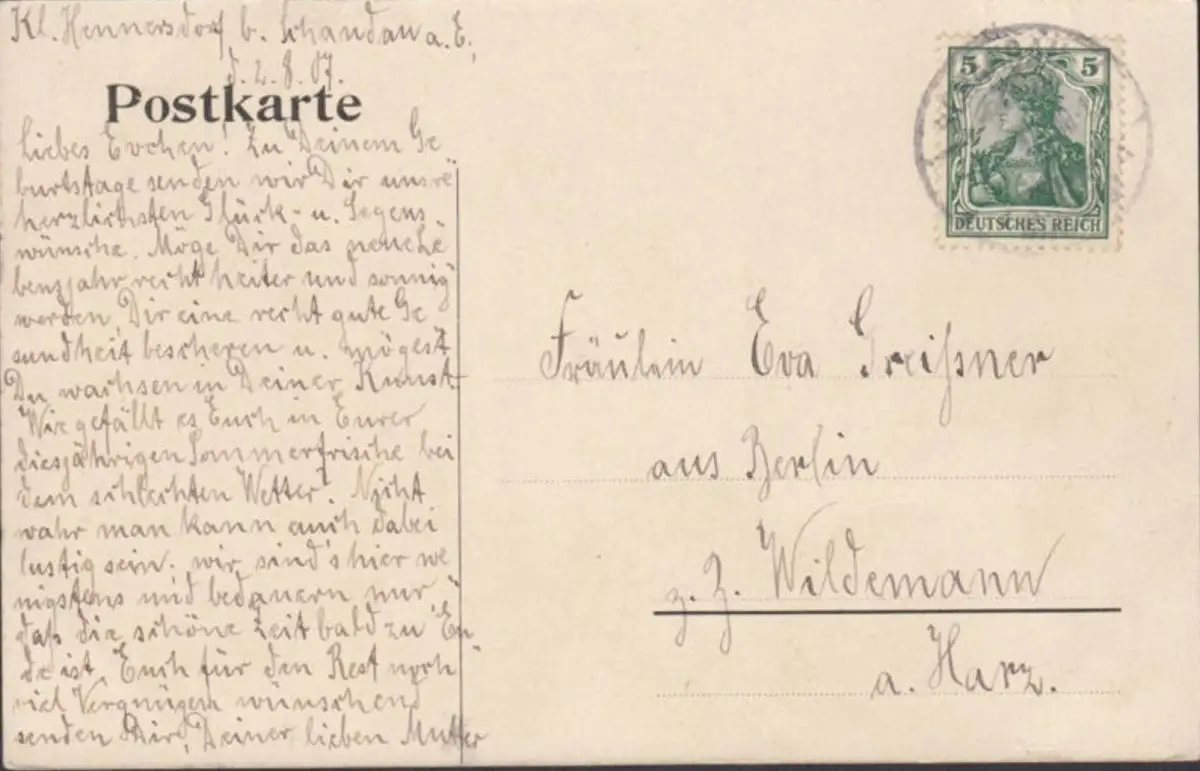 Kl. Hennersdorf b. Schandau a. E.
d. 2. 8. 07.
Postkarte
Liebes Evchen! Zu Deinem Ge
burtstage senden wir Dir unsre
herzlichsten Glück- u. Segens
wünsche. Möge Dir das neue Le
bensjahr recht heiter und sonnig
werden, Dir eine recht gute Ge
sundheit bescheren u. mögest
Du wachsen in Deiner Kunst.
Wie gefällt es Euch in Eurer
diesjährigen Sommerfrische bei
dem schlechten Wetter? Nicht
wahr man kann auch dabei
lustig sein. wir sind's hier we
nigstens und bedauern nur,
daß die schöne Zeit bald zu En
de ist. Euch für den Rest noch
viel Vergnügen wünschend
senden Dir, Deiner lieben Mutter
5 5
DEUTSCHES REICH
Fräulein Eva Greißner
aus Berlin
z. Z. Wildemann
a. Harz.